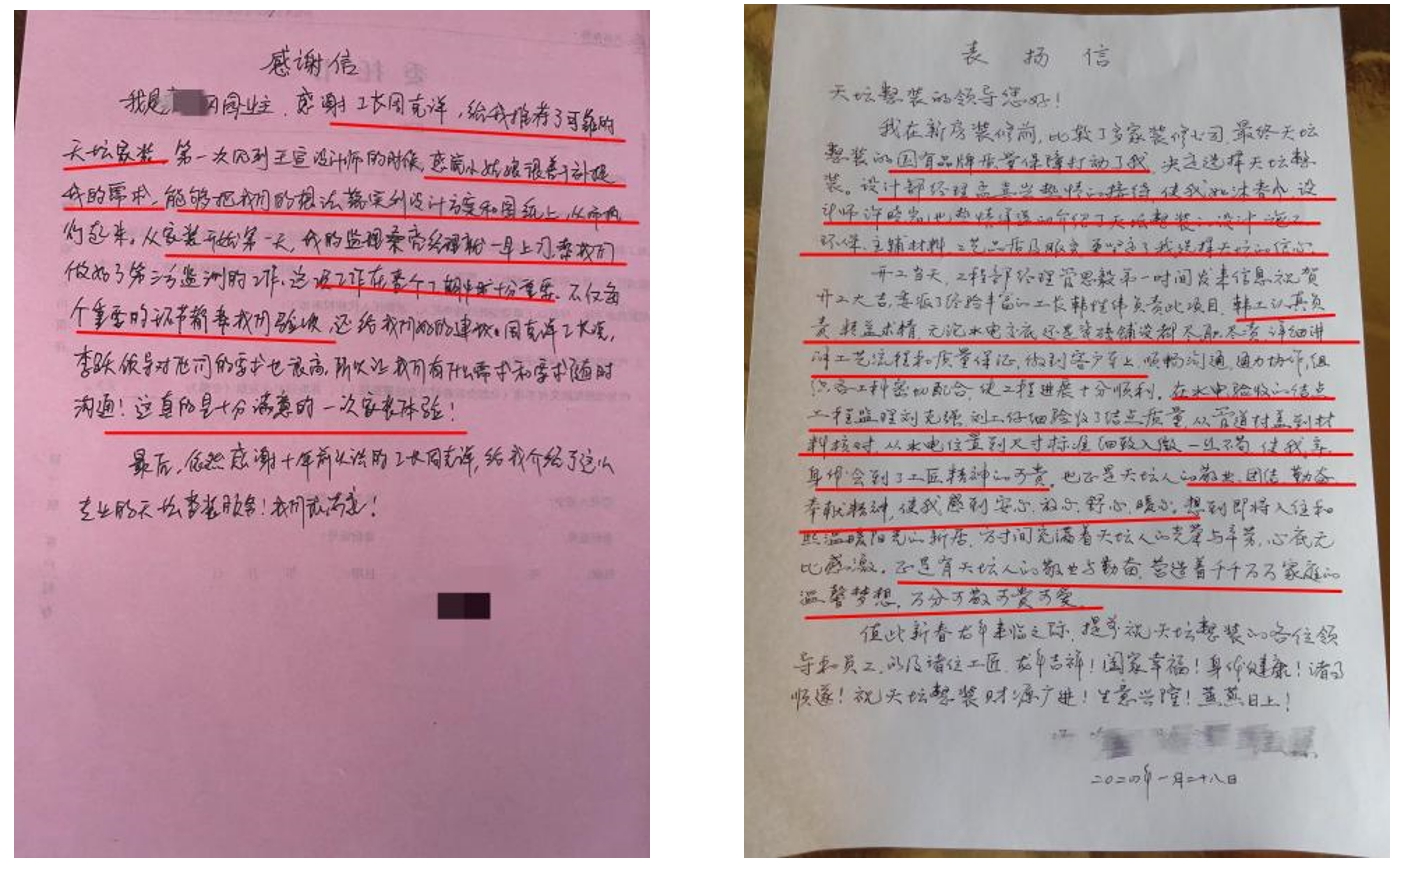 感谢信
我是 园业主，感谢工长周克详，给我推荐了可靠的
天坛家装 第一次见到王宣设计师的时候，感觉小姑娘很善于捕捉
我的需求，能够把我们的想法落实到设计方案和图纸上，
从家装开始第一天，我的监理秦亮经理就一早上门来我们
做好了第三方监测的工作。这项工作在整个工期中十分重要。不仅每
个重要的环节都来我们验收，还给我们好的建议。周克详工长说，
李跃领导对他们的要求也很高，所以让我们有什么需求和要求随时
沟通！这真的是十分满意的一次家装体验！
最后，依然感谢十年前认识的工长周克详，给我介绍了这么
专业的天坛整装服务！我们非常满意！
表扬信
天坛整装的领导您好！
我在新房装修前，比较了多家装修公司，最终天坛
整装的国有品牌质量保障打动了我，决定选择天坛整
装。设计部经理孟嘉岂热情的接待，使我如沐春风，设
计师许晓 热情详尽的介绍了天坛整装的设计
环保、主辅材料、工艺品质及服务，更坚定了我选择天坛的信心。
开工当天，工程部经理管思毅第一时间发来信息祝贺
开工大吉，委派了经验丰富的工长韩性伟负责此项目，韩工认真负
责，精益求精，无论水电交底还是瓷砖铺设都尽职尽责，详细讲
解工艺流程和质量保证，做到客户至上，顺畅沟通，通力协作，组
织各工种密切配合，使工程进展十分顺利。在水电验收的结点
工程监理刘克强 刘工仔细验收了结点质量，从管道封盖到材
料核对，从水电位置到尺寸标准，细致入微，一丝不苟，使我亲
身体会到了工匠精神的可贵，也正是天坛人的敬业、团结、勤奋
奉献精神，使我感到安心、放心、舒心、暖心。想到即将入住和
熙温暖阳光的新居，方寸间充满着天坛人的光荣与辛劳，心底无
比感激。正是有天坛人的敬业与勤奋，营造着千千万万家庭的
温馨梦想，万分可敬可贵可爱。
值此新春龙年来临之际，提前祝天坛整装的各位领
导和员工，以及诸位工匠，龙年吉祥！阖家幸福！身体健康！诸事
顺遂！祝天坛整装财源广进！生意兴隆！蒸蒸日上！
二〇二四年一月二十八日